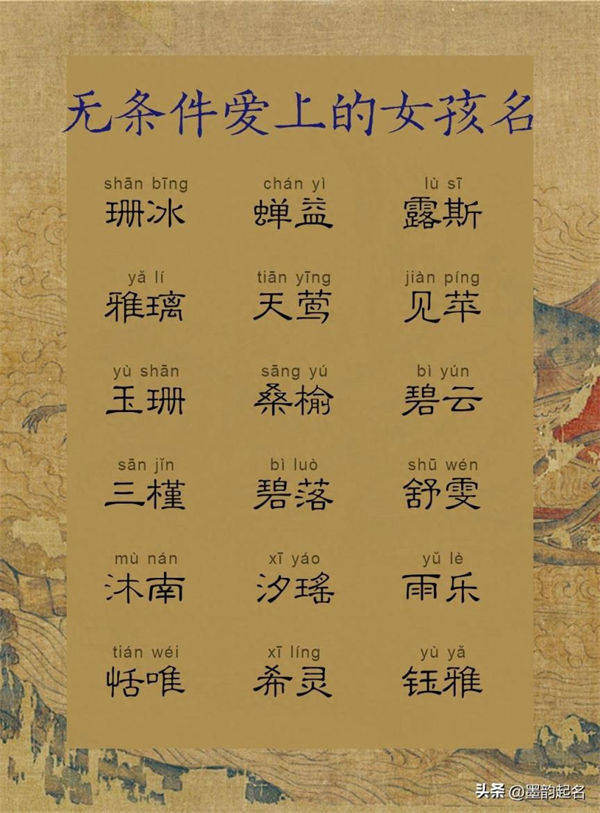 无条件爱上的女孩名
shān bīng chán yì lù sī
珊冰 蝉益 露斯
yǎ lí tiān yīng jiàn píng
雅璃 天莺 见苹
yù shān sāng yú bì yún
玉珊 桑榆 碧云
sān jǐn bì luò shū wén
三槿 碧落 舒雯
mù nán xī yáo yǔ lè
沐南 汐瑶 雨乐
tián wéi xī líng yù yǎ
恬唯 希灵 钰雅
头条 @墨韵起名